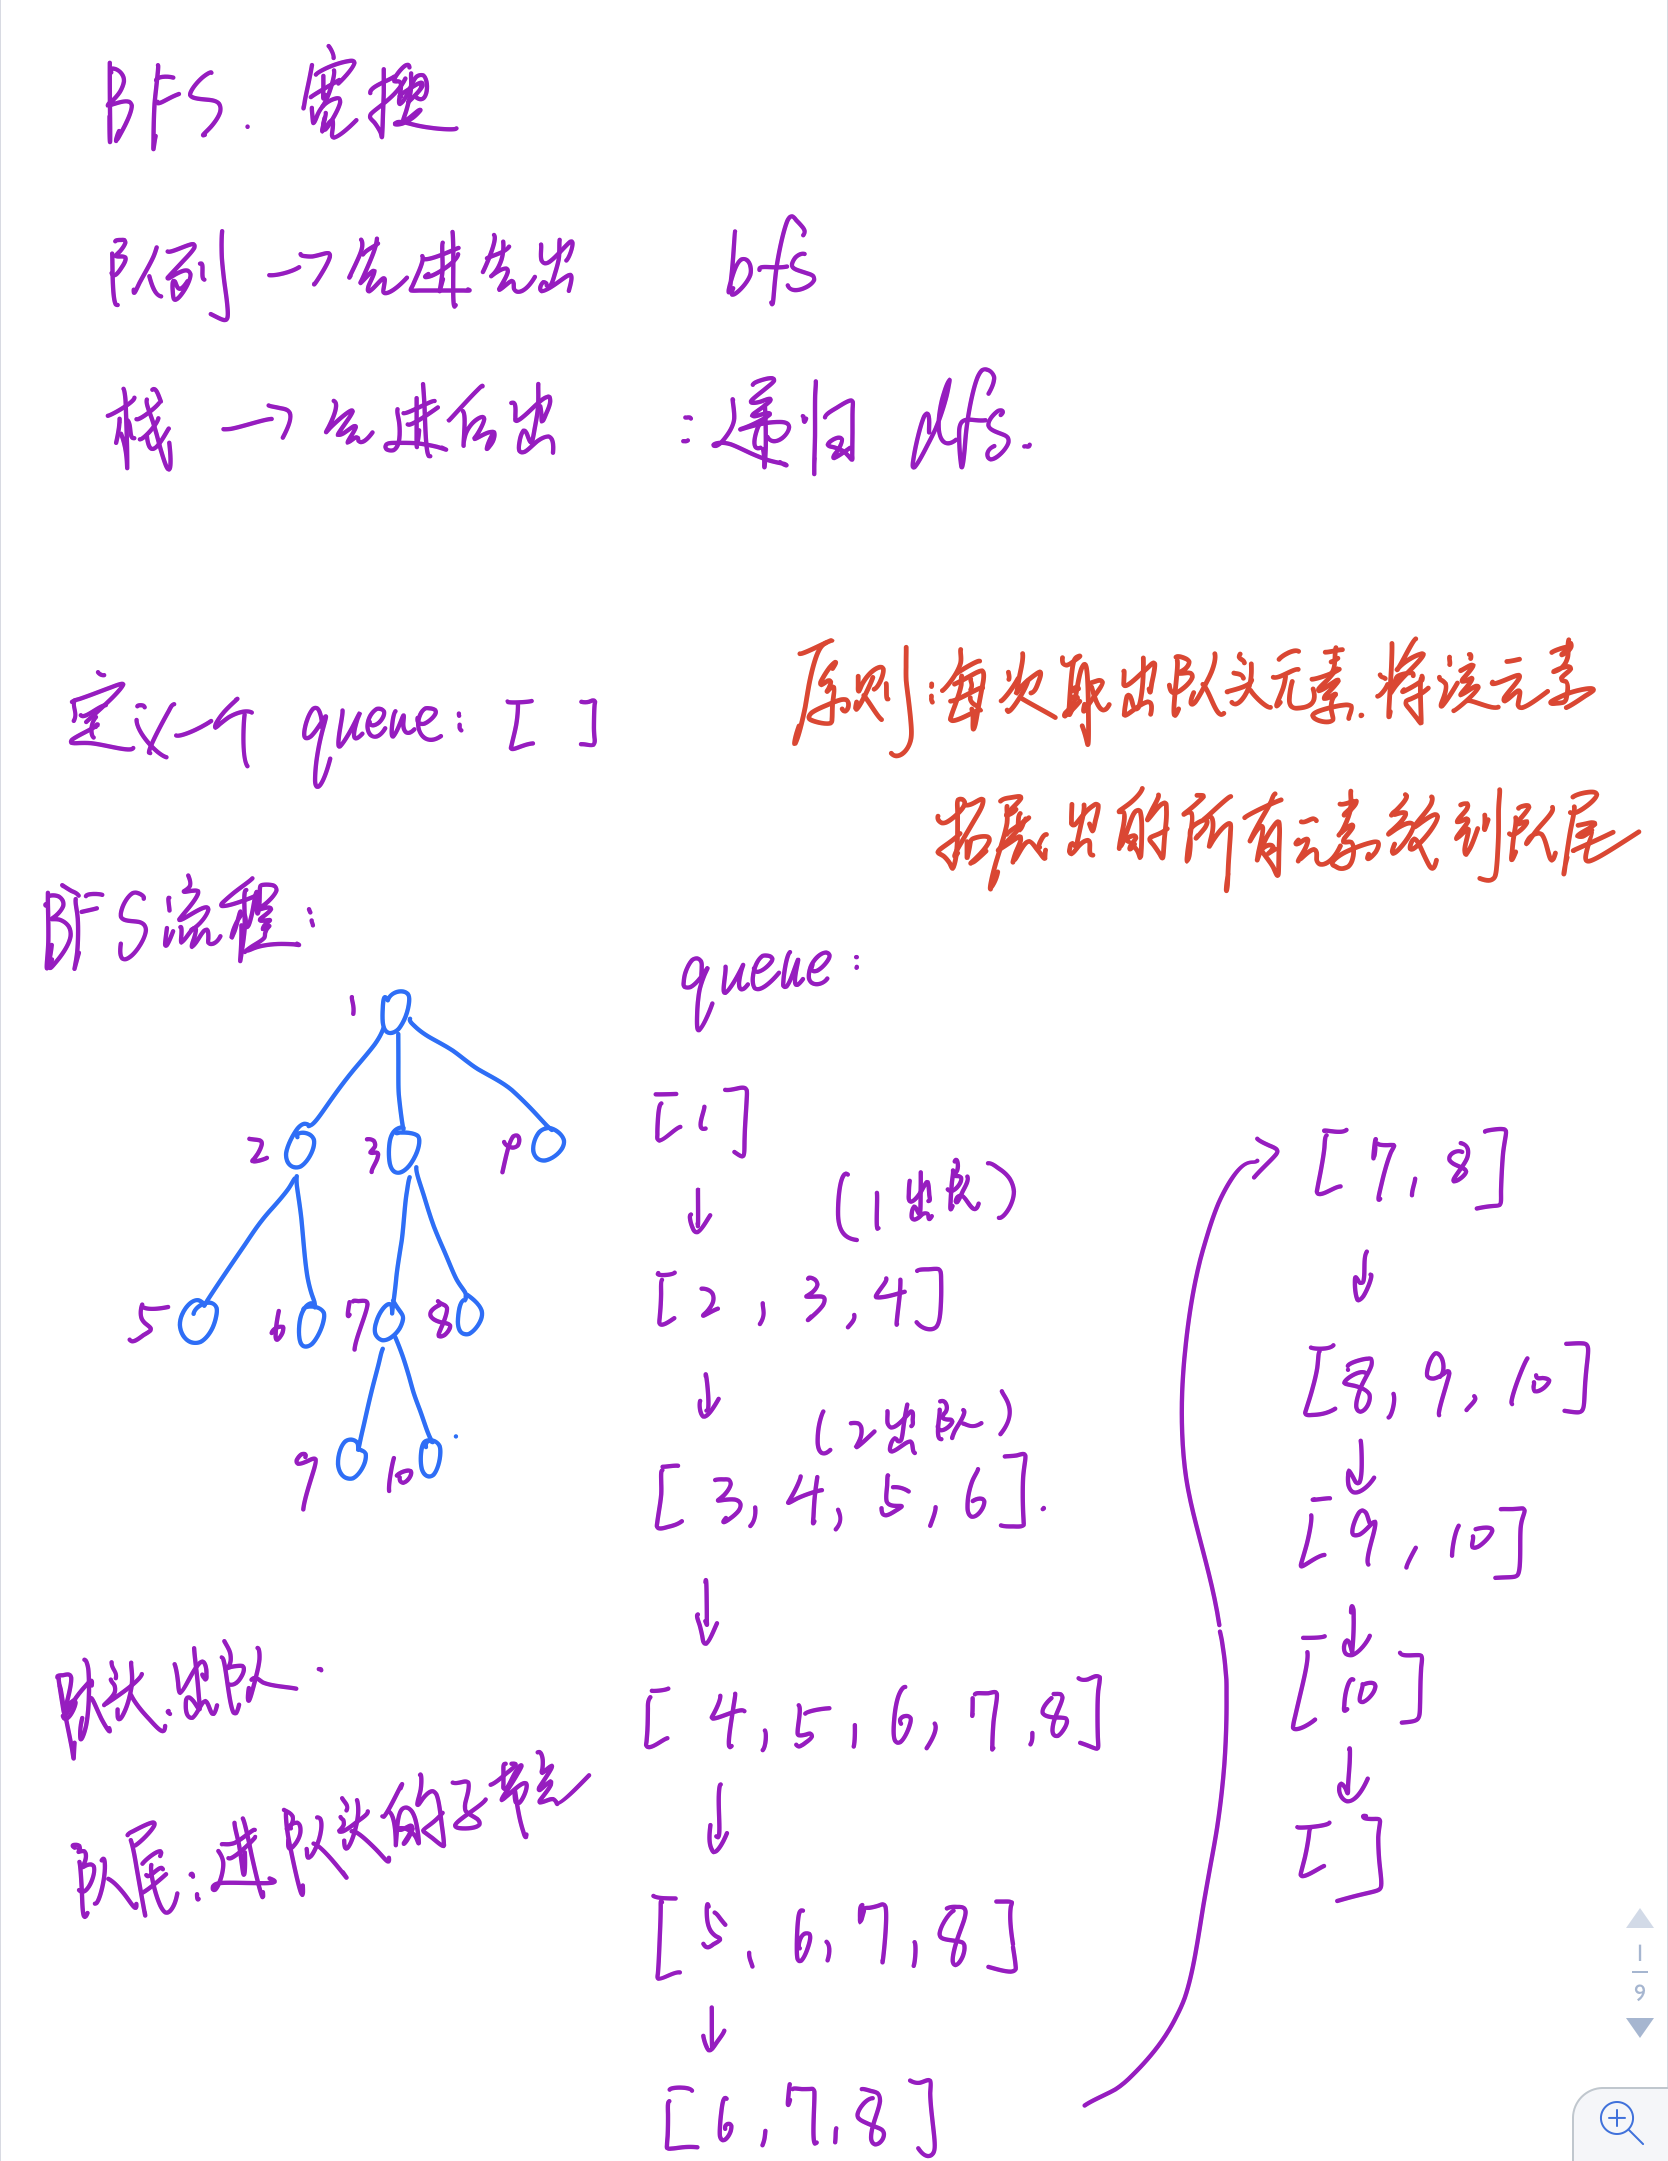 BFS. 宽搜
队列 → 先进先出 bfs
栈 → 先进后出 : 递归 dfs.
定义一个 queue: [ ]
原则:每次取出队头元素.将该元素
拓展出的所有元素放到队尾
BFS流程:
1
2 3 4
5 6 7 8
9 10
队头.出队.
队尾:进队头的子节点
queue:
[1]
↓ (1出队)
[2, 3, 4]
↓ (2出队)
[3, 4, 5, 6].
↓
[4, 5, 6, 7, 8]
↓
[5, 6, 7, 8]
↓
[6, 7, 8]
[7, 8]
↓
[8, 9, 10]
↓
[9, 10]
↓
[10]
↓
[]
1
9